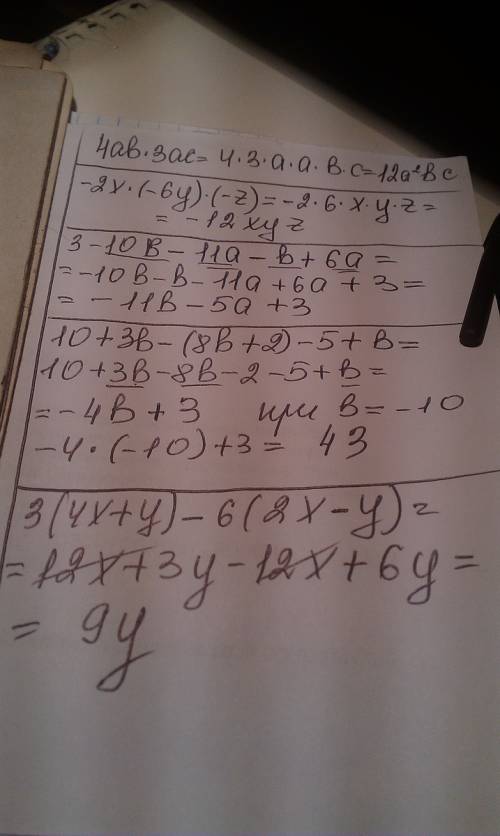 4ab·3ac= 4·3·a·a·b·c=12a²bc
-2x·(-6y)·(-z)=-2·6·x·y·z=
= -12xyz
3-10b-11a-b+6a=
=-10b-b-11a+6a+3=
= -11b-5a+3
10+3b-(8b+2)-5+b=
10+3b-8b-2-5+b=
=-4b+3 при b=-10
-4·(-10)+3= 43
3(4x+y)-6(2x-y)=
=12x+3y-12x+6y=
= 9y